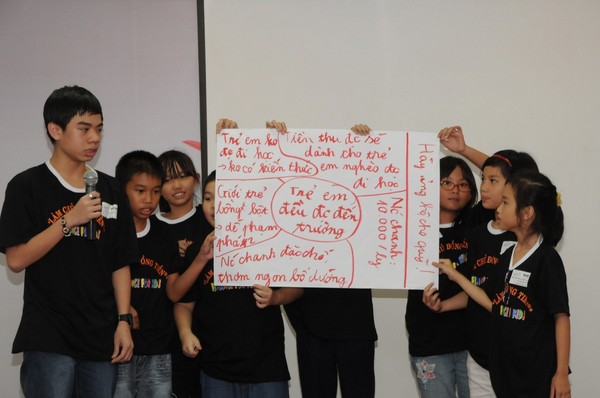 Trẻ em ko
đc đi học
→ ko có kiến thức
Tiền thu đc sẽ
dành cho trẻ
em nghèo đc
đi học
Giới trẻ
bồng bột
→ dễ phạm
pháp
Trẻ em
đều đc đến
trường
Nc chanh:
10 000/ly
Nc chanh đào chế
thơm ngon bổ dưỡng
Hãy ủng hộ cho quỹ!